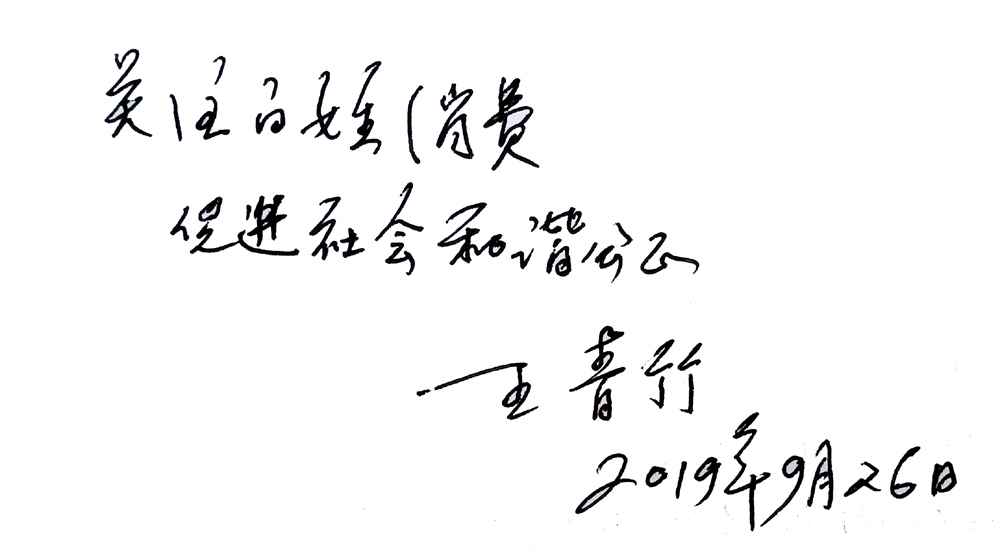 关注百姓消费
促进社会和谐公正
王青竹
2019年9月26日